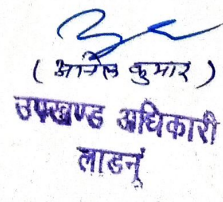 ( अनिल कुमार )
उपखण्ड अधिकारी
लाडनूं